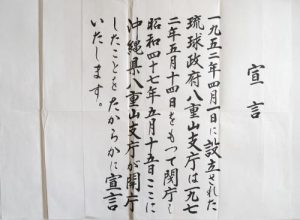 宣言
一九五二年四月一日に設立された
琉球政府八重山支庁は一九七
二年五月十四日をもつて閉庁し
昭和四十七年五月十五日ここに
沖縄県八重山支庁が開庁
したことをたからかに宣言
いたします。